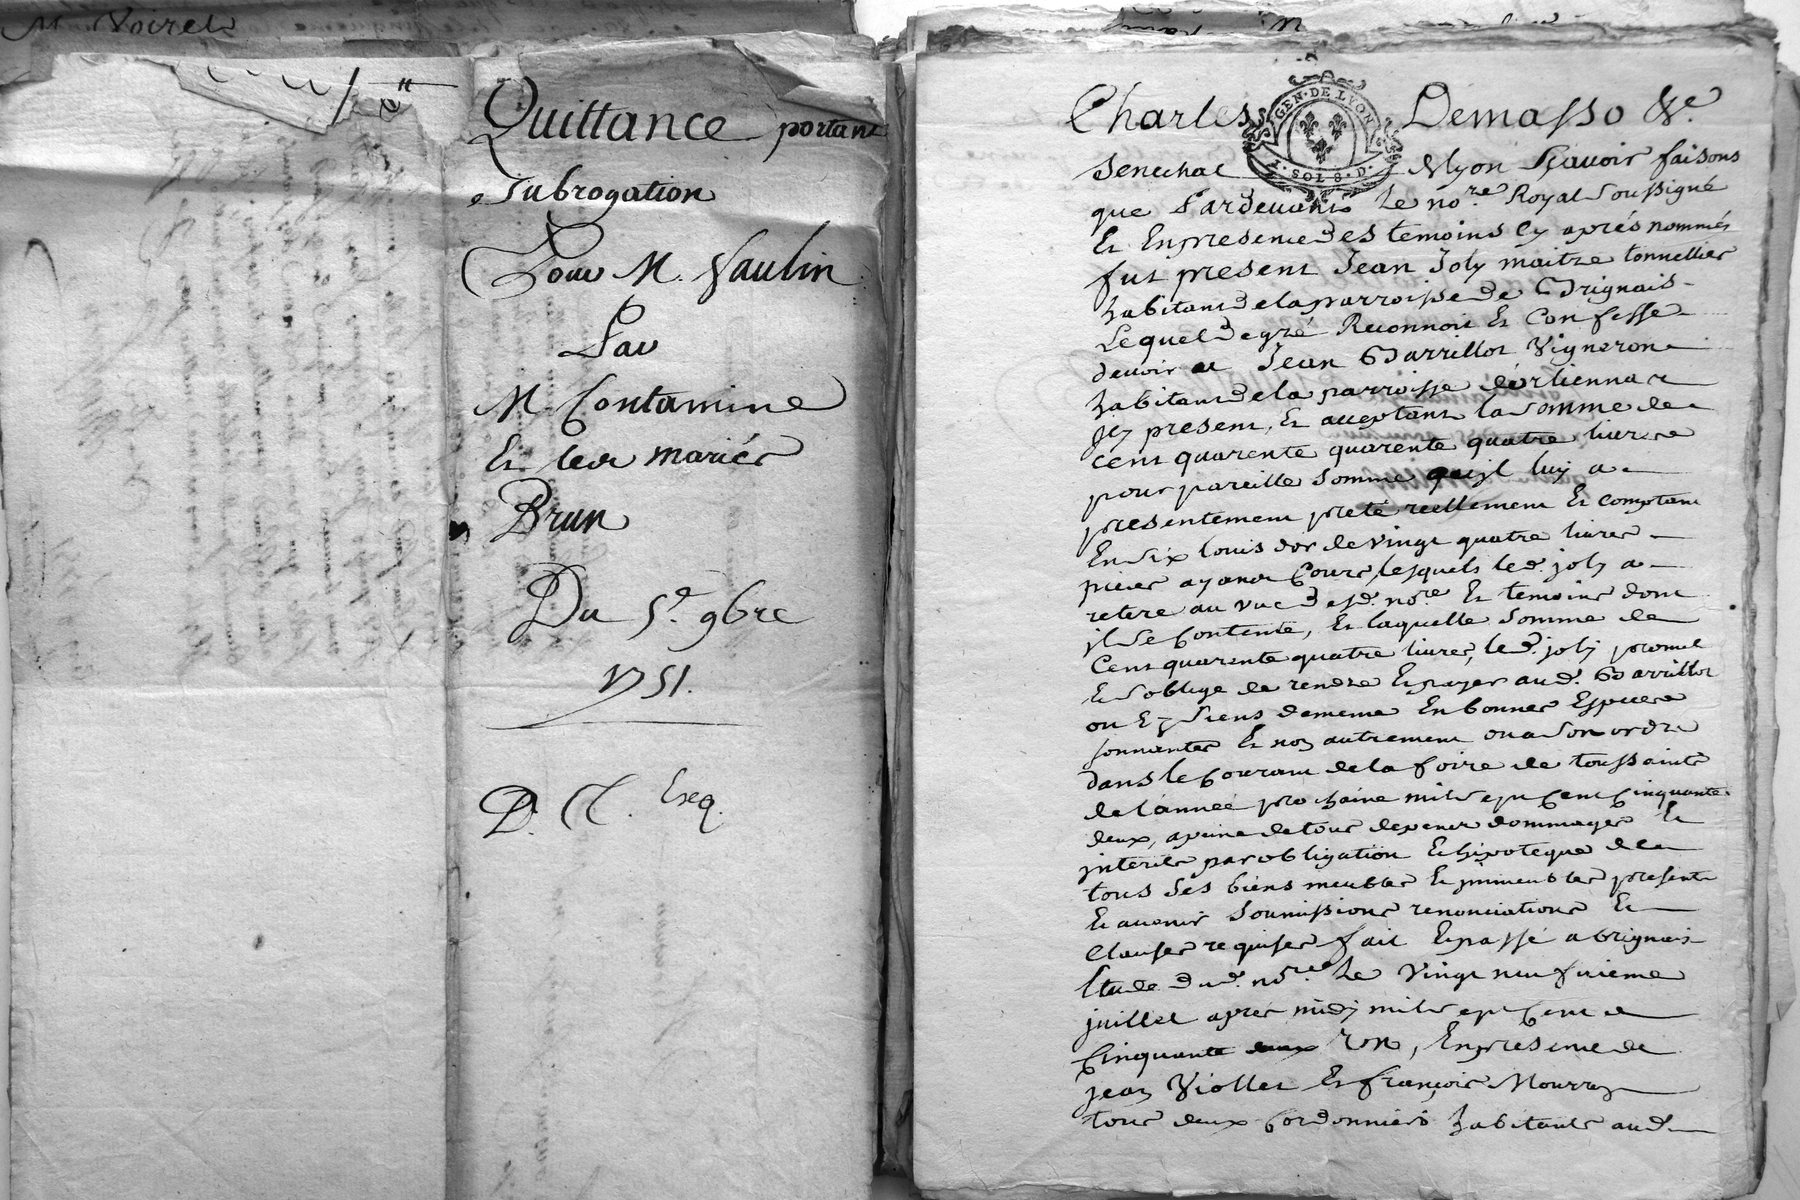 M. Voiret
Quittance portant
Subrogation
Pour M. Vaulin
Par
M Contamine
Et les mariés
Brun
Du 5e. 9bre
1751.
D. Cl. Exq.
Charles Demasso &c.
GEN. DE LYON
2. SOLS 8. D.
Senechal Dlyon Sçavoir faisons
que Pardevant Le nore. Royal Soussigné
Et Enpresence des temoins Cy aprés nommés
fut present Jean Joly maitre tonnellier
habitant delaparroisse de Brignais
Lequel degré Reconnoit Et Confesse
devoir a Jean Barrillot Vigneron
habitant dela parroisse dorlienna
Jcy present, Et acceptant la somme de
cent quarente quatre livres
pour pareille somme quil luy a
presentement preté reellement Et comptant
En Six louis dor de vingt quatre livres
pieces ayant Cours, lesquels led. joly a
retiré au vue desd. nore. Et temoins dont
jl se Contente, Et laquelle somme de
Cent quarente quatre livres, led. joly promet
Et soblige de rendre Etpayer aud. Barrillot
ou Ez Siens dememe Enbonnes Especes
sonnantes Et non autrement ou a Son ordre
dans le Courant dela foire de toussaints
delannée prochaine mil sept Cent Cinquante
deux, apeine detous depens dommages Et
jnterets par obligation Et hipoteque de
tous ses biens meubles Et jmmeubles presents
Et avenir Soumissions renonciations Et
Clauses requises fait Etpassé a brignais
Etude dud. nore. Le Vingt neufvieme
juillet aprés midy mil sept Cent
Cinquante Un, Enpresence de
jean Viollet Et françois Mourra
tous deux Cordonniers habitants aud.